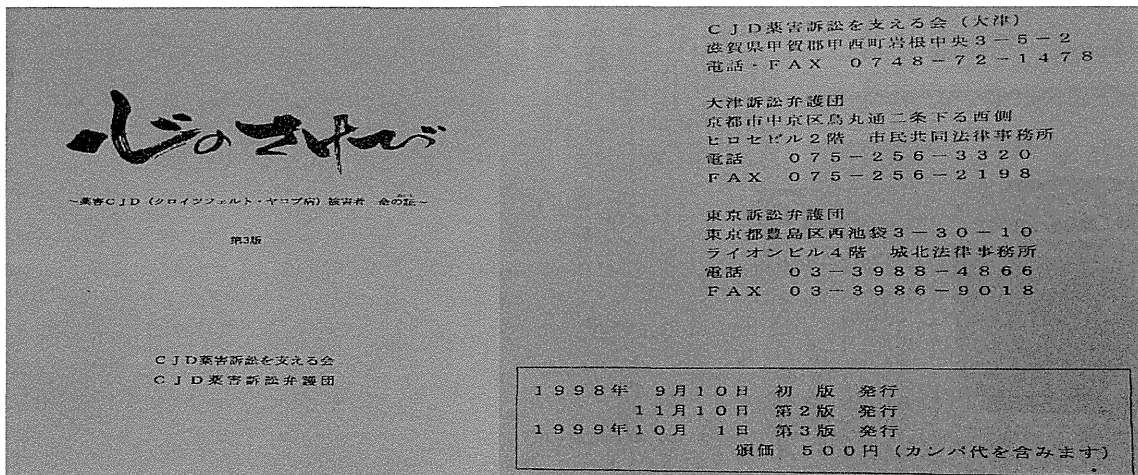 心のさけび
～薬害CJD（クロイツフェルト・ヤコブ病）被害者 命の証～
第3版
CJD薬害訴訟を支える会
CJD薬害訴訟弁護団
CJD薬害訴訟を支える会（大津）
滋賀県甲賀郡甲西町岩根中央3－5－2
電話・FAX 0748－72－1478
大津訴訟弁護団
京都市中京区烏丸通二条下る西側
ヒロセビル2階 市民共同法律事務所
電話 075－256－3320
FAX 075－256－2198
東京訴訟弁護団
東京都豊島区西池袋3－30－10
ライオンビル4階 城北法律事務所
電話 03－3988－4866
FAX 03－3986－9018
1998年 9月10日 初 版 発行
11月10日 第2版 発行
1999年10月 1日 第3版 発行
頒価 500円（カンパ代を含みます）